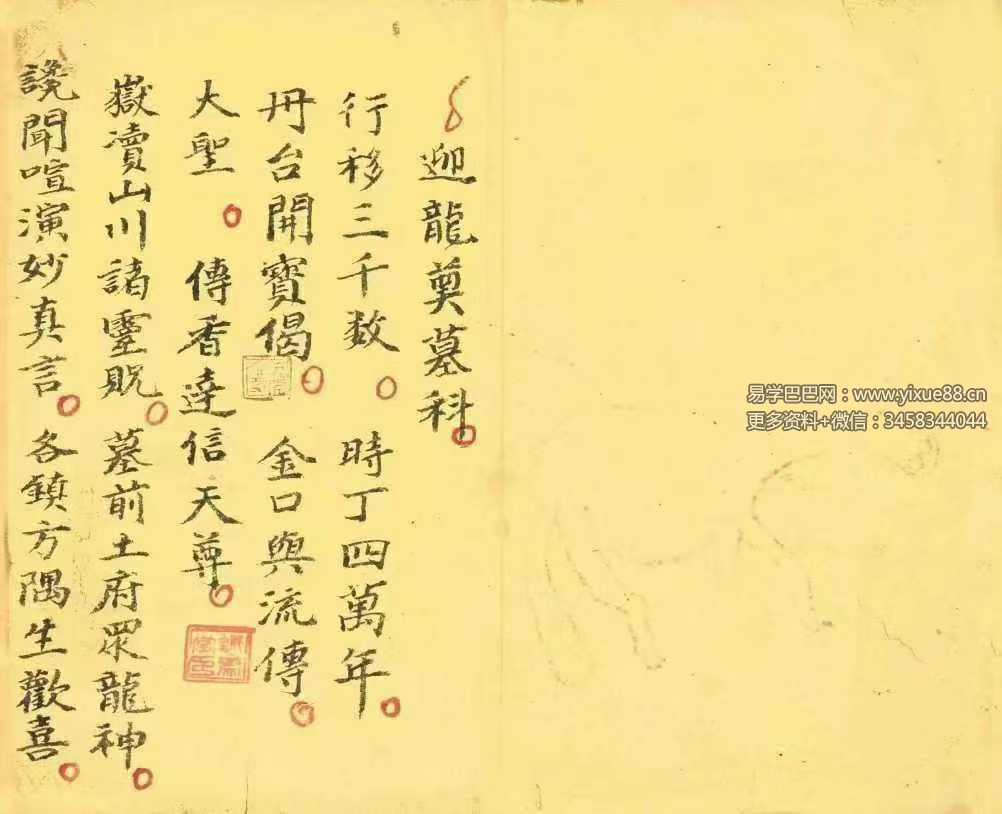 迎龍奠墓科
行移三千数 時丁四萬年
丹台開寶偈 金口與流傳
大聖 傳香達信天尊
嶽瀆山川諸靈貺 墓前土府眾龍神
讒聞喧演妙真言 各鎮方隅生歡喜
易学巴巴网：www.yixue88.cn
更多资料+微信：3458344044